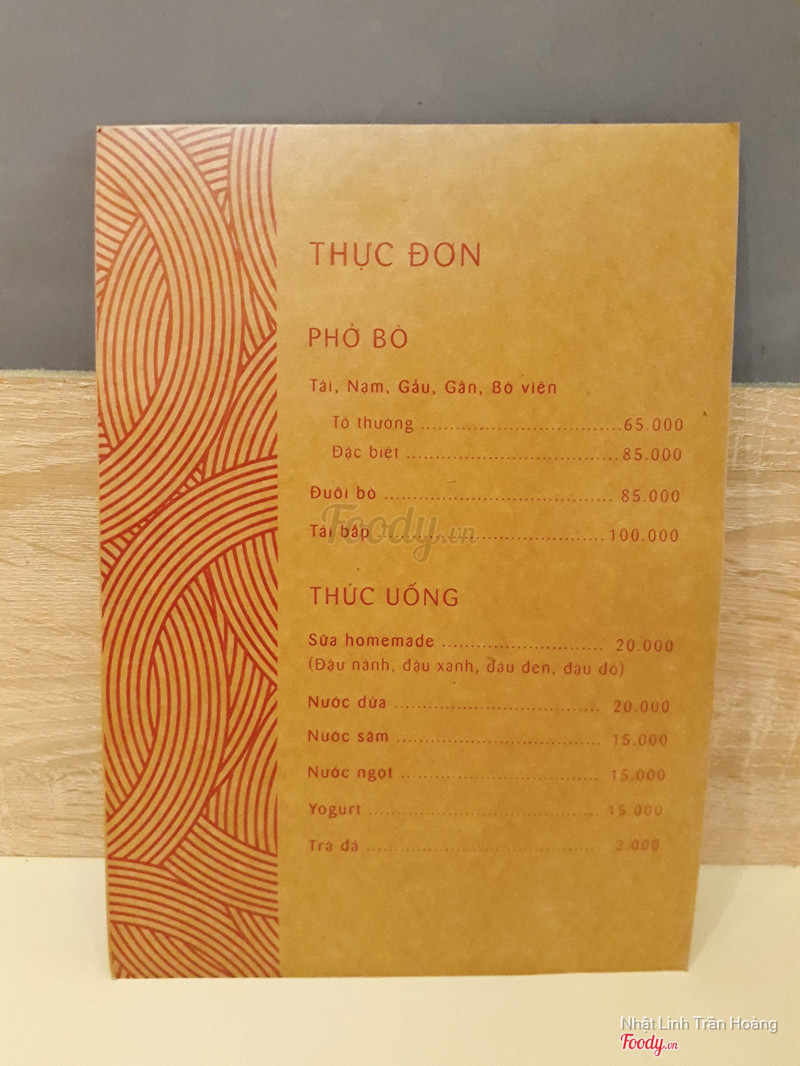 THỰC ĐƠN
PHỞ BÒ
Tái, Nạm, Gầu, Gân, Bò viên
Tô thường ................................ 65.000
Đặc biệt ................................ 85.000
Đuôi bò ................................ 85.000
Tái bắp ................................ 100.000
Foody.vn
THỨC UỐNG
Sữa homemade ............................ 20.000
(Đậu nành, đậu xanh, đậu đen, đậu đỏ)
Nước dừa ................................ 20.000
Nước sâm ................................ 15.000
Nước ngọt ................................ 15.000
Yogurt ................................ 15.000
Trà đá ................................ 2.000
Nhật Linh Trần Hoàng
Foody.vn